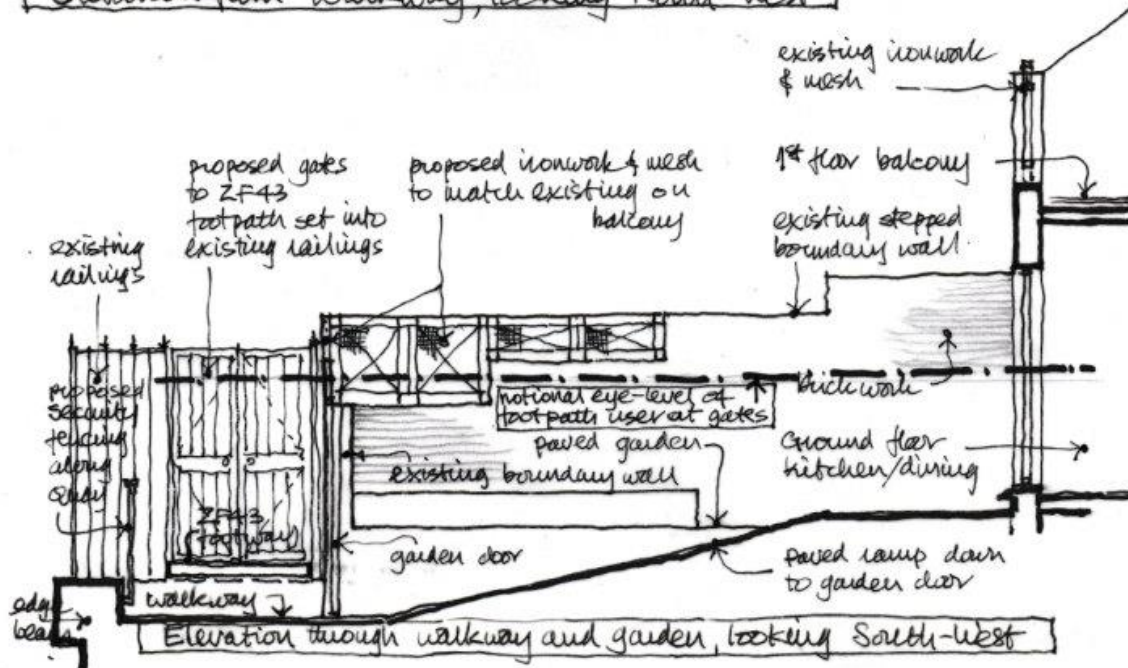 Elevation from walkway, looking
existing ironwork
& mesh
proposed gates
to ZF43
footpath set into
existing railings
proposed ironwork & mesh
to match existing on
balcony
1st floor balcony
existing stepped
boundary wall
existing
railings
proposed
security
fencing
along
quay
notional eye-level of
footpath user at gates
brickwork
paved garden
existing boundary wall
Ground floor
kitchen/dining
ZF43
footway
garden door
paved ramp down
to garden door
walkway
edge
beam
Elevation through walkway and garden, looking South-West